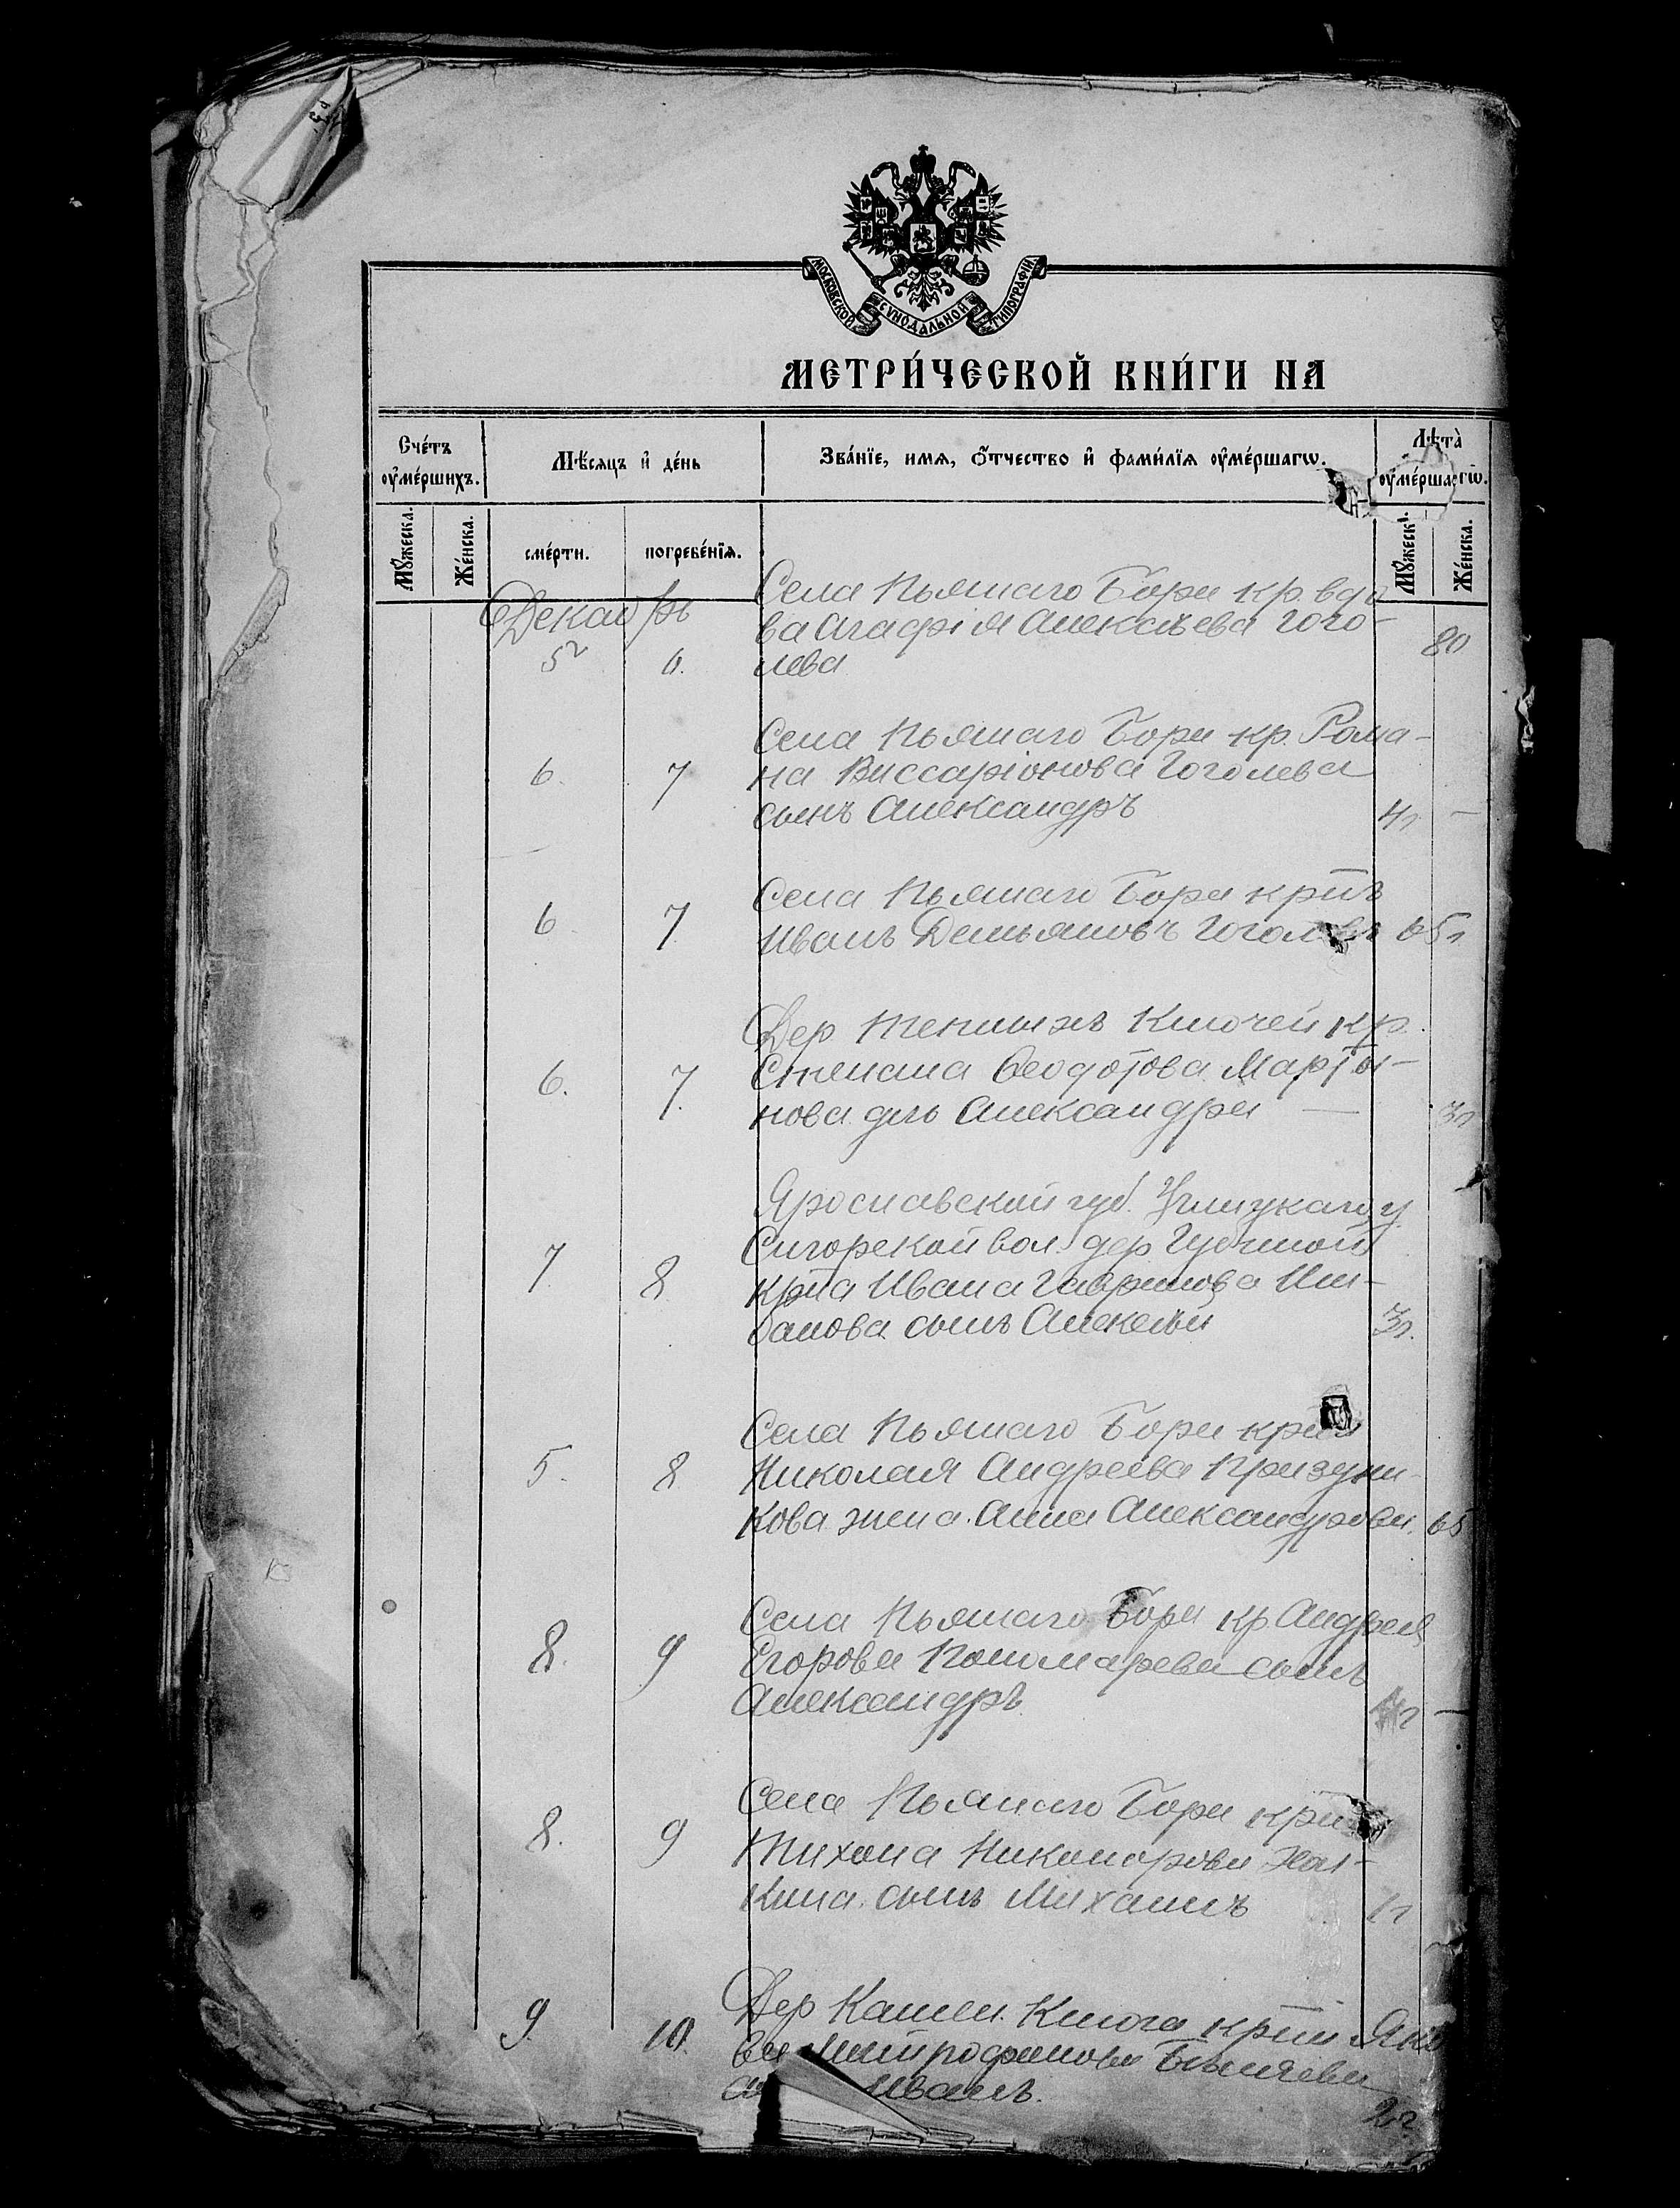 МОСКОВСКОЙ СУНОДАЛЬНОЙ ТИПОГРАФІИ
МЕТРИ́ЧЕСКОЙ КНИ́ГИ НА
Сче́тъ ᲂу҆ме́ршихъ.
Мѣ́сяцъ и҆ де́нь
Зва́нїе, имѧ, ѻ҆́тчество и҆ фами́лїѧ ᲂу҆ме́ршагѡ.
Лѣ́та̀ ᲂу҆ме́ршагѡ.
Мꙋ́жеска.
Же́нска.
сме́рти.
погребе́нїѧ.
Мꙋ́жеск.
Же́нска.
Декабрь
Села Пьянаго Бора кр. вдо
ва Агафія Алексѣева Гого-
5 6. лева 80
Села Пьянаго Бора кр. Рома-
6. 7 на Виссаріонова Гоголева
сынъ Александръ 4г –
Села Пьянаго Бора крнъ
6 7 Иванъ Демьяновъ Гоголевъ 65г
Дер Ключей кр.
6. 7. Степана Ѳеодотова Марты-
нова дчь Александра — 3г
Ярославской губ. Углицкаго у
вол. дер
7 8 крна Ивана Гаврилова
сынъ Алексѣй 3г.
Села Пьянаго Бора крна
5. 8 Николая Андреева
кова жена Анна Александрова 65
Села Пьянаго Бора кр Андрея
8. 9 Егорова Пономарева сынъ
Александръ 4г –
Села Пьянаго Бора крна
8. 9 Тихона Никанорова
кина сынъ Михаилъ 1г
Дер Камен. Ключа крна Яко
9. 10. ва Митрофанова
Иванъ. 2г